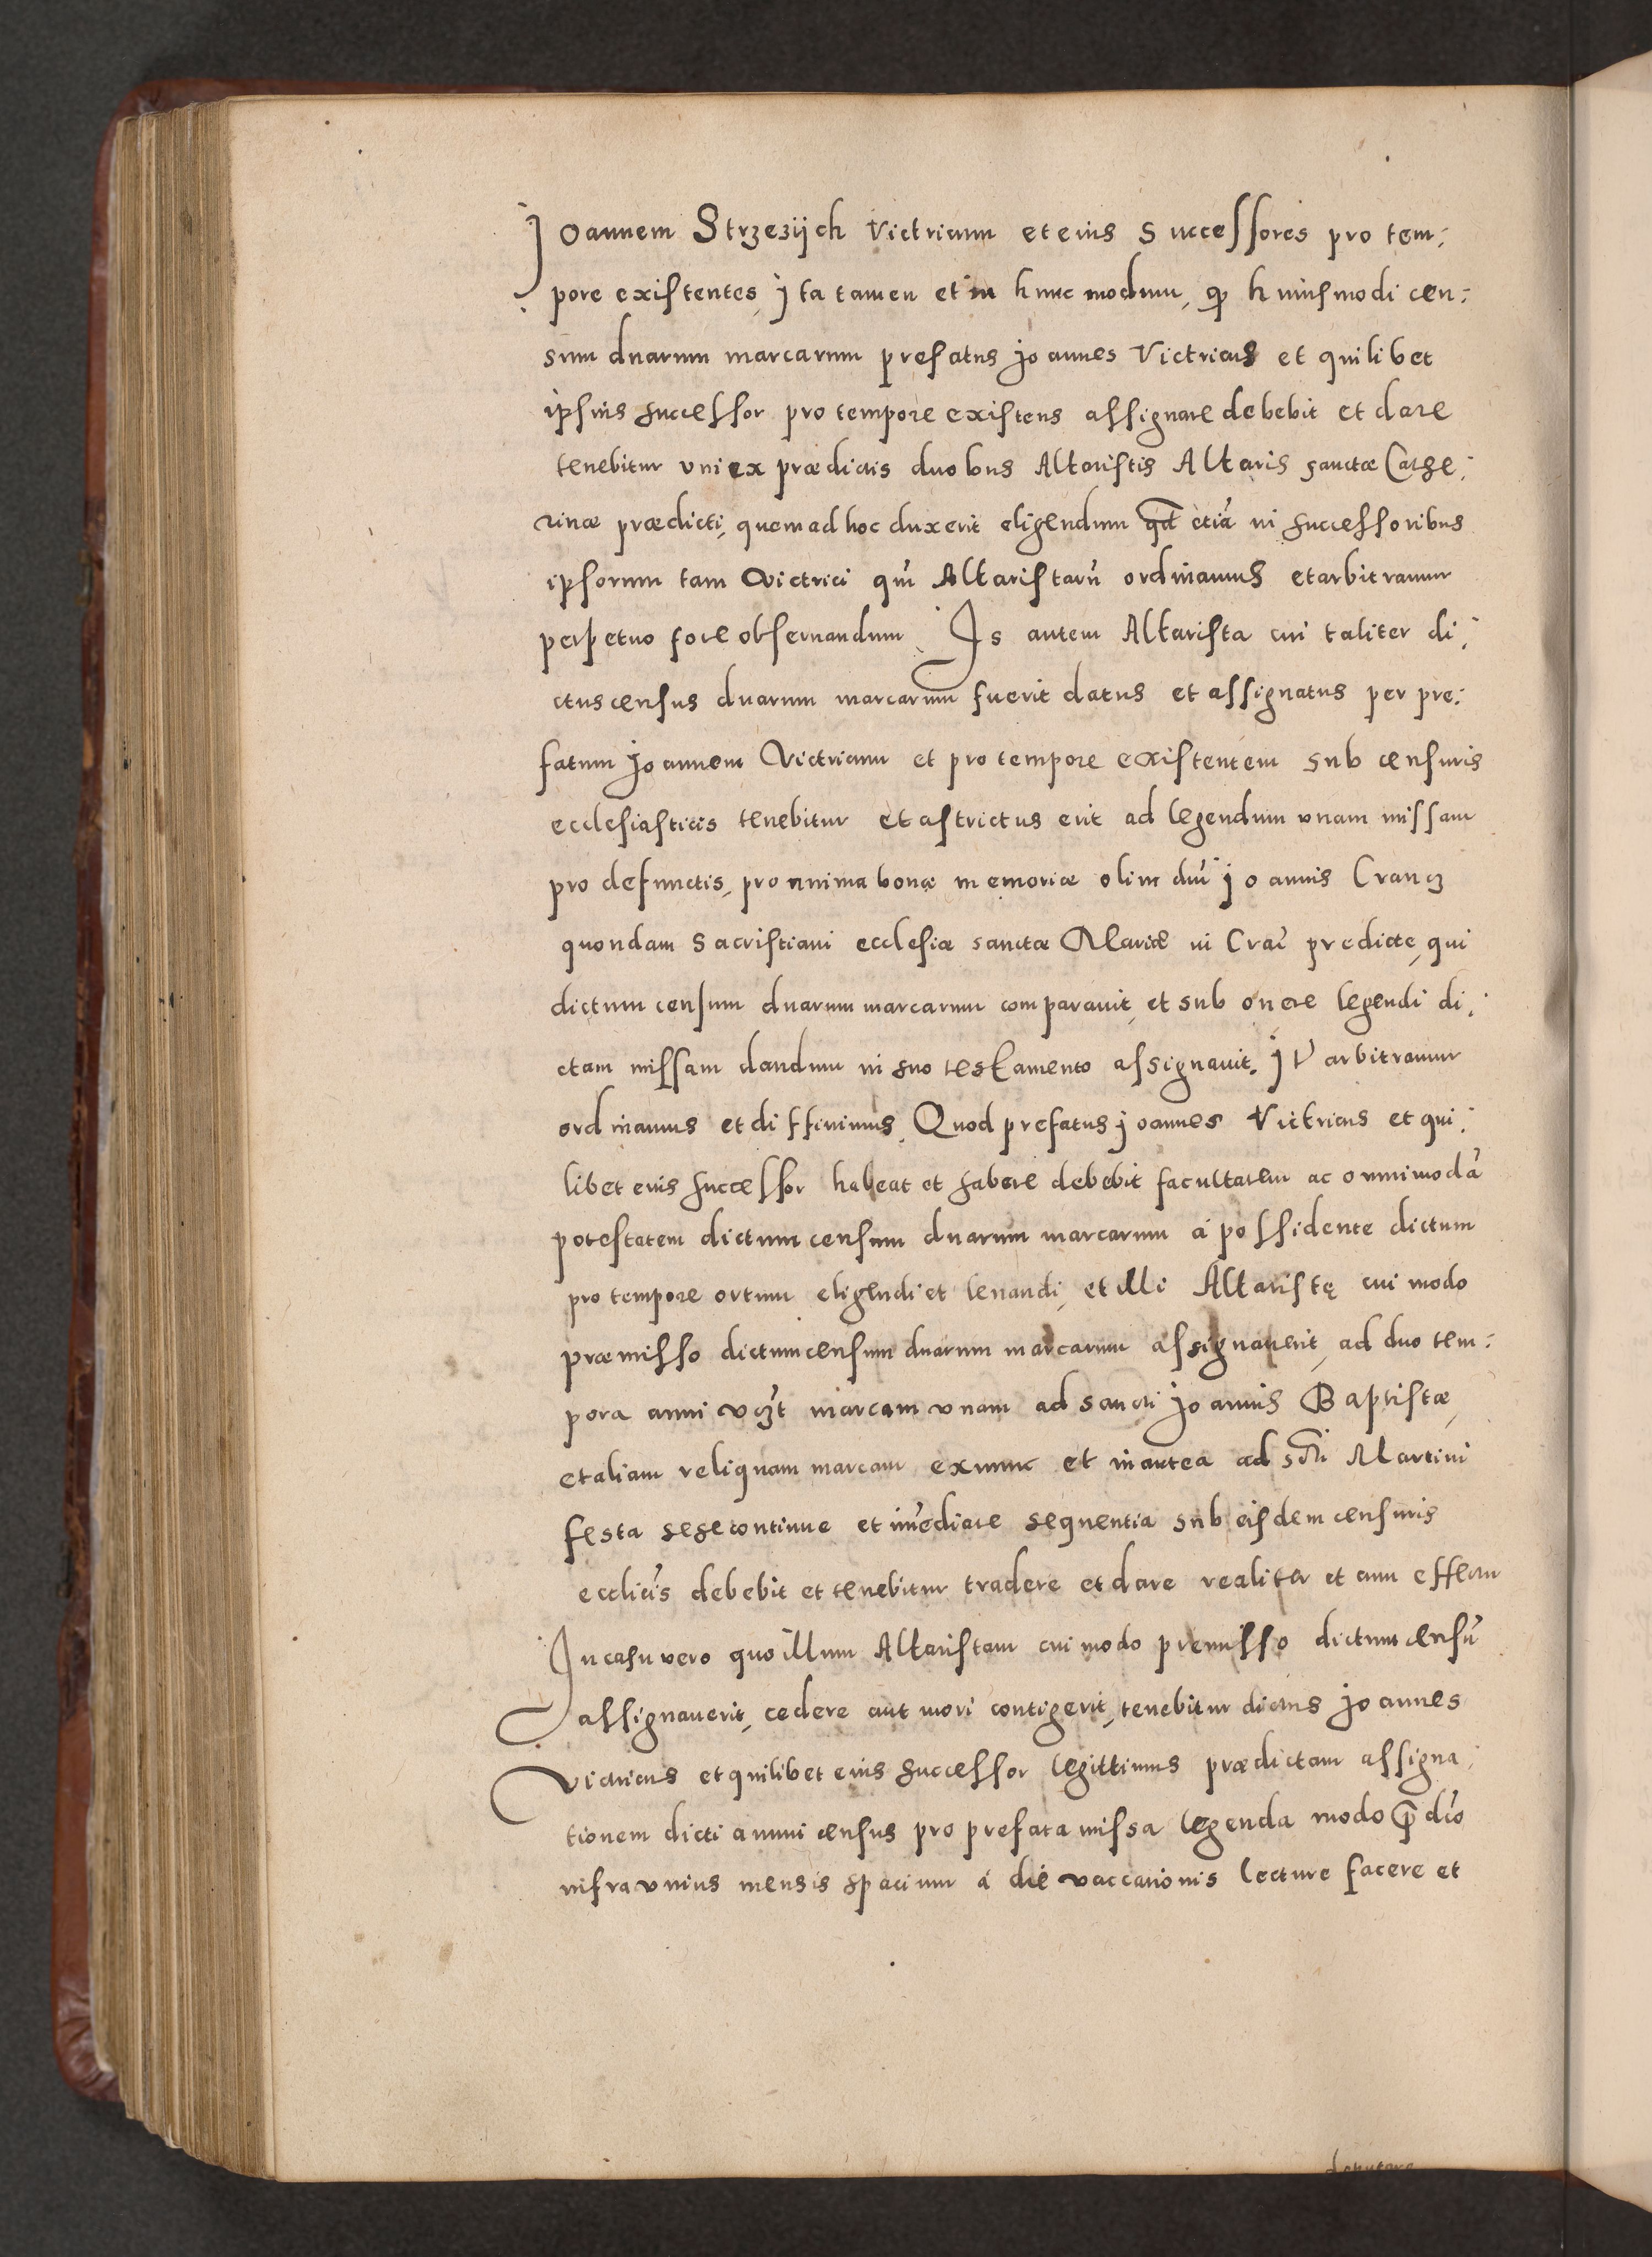 Joannem Strzezijch Victricum et eius Successores pro tem:
pore existentes, jta tamen et in hunc modum, ꝙ huiusmodi cen:
sum duarum marcarum prefatus joannes Victricus et quilibet
ipsius successor pro tempore existens assignare debebit et dare
tenebitur vni ex prædictis duobus Altaristis Altaris sanctæ Cathe:
rinæ prædicti, quem ad hoc duxerit eligendum qd etiā in successoribus
ipsorum tam Victrici qm̄ Altaristarū ordinamus et arbitramur
perpetuo fore obseruandum. Is autem Altarista cui taliter di:
ctus census duarum marcarum fuerit datus et assignatus per pre:
fatum joannem Victricum et pro tempore existentem sub censuris
ecclesiasticis tenebitur et astrictus erit ad legendum vnam missam
pro defunctis, pro anima bonæ memoriæ olim dnī joannis Crancz
quondam Sacristiani ecclesiæ sanctæ Mariæ in Crac̄ predicte, qui
dictum censum duarum marcarum comparauit, et sub onere legendi di:
ctam missam dandum in suo testamento assignauit. jt̄ arbitramur
ordinamus et diffinimus. Quod prefatus joannes Victricus et qui:
libet eius successor habeat et habere debebit facultatem ac omnimodā
potestatem dictum censum duarum marcarum á possidente dictum
pro tempore ortum eligendi et leuandi, et illi Altaristę cui modo
præmisso dictum censum duarum marcarum assignauerit, ad duo tem:
pora anni vczt marcam vnam ad sancti joannis Baptistæ,
et aliam reliquam marcam exnunc et inantea ad sti Martini
festa sese continue et im̄ediate sequentia sub eisdem censuris
ecclicīs debebit et tenebitur tradere et dare realiter et cum effectu
In casu vero quo illum Altaristam cui modo premisso dictum censū
assignauerit, cedere aut mori contigerit, tenebitur dictus joannes
Victricus et quilibet eius successor legittimus prædictam assigna:
tionem dicti annui census pro prefata missa legenda modo p̄dc̄o
infra vnius mensis spacium á die vaccationis lecture facere et
deputare